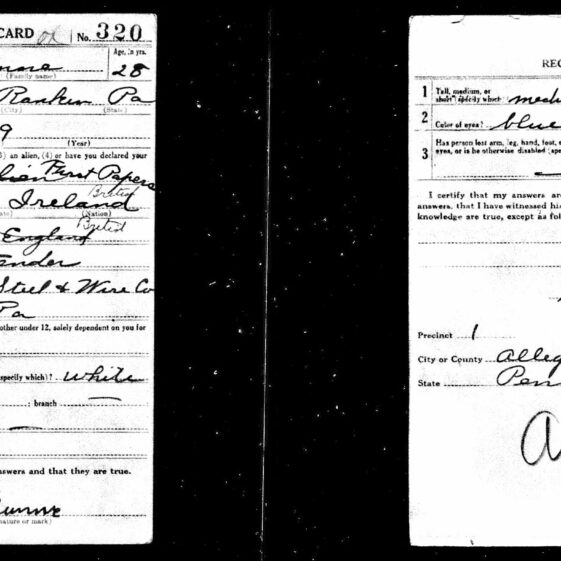 CARD
No. 320
Age, in yrs.
28
(Family name)
Rankin Pa
(City) (State)
9
(Year)
3) an alien, (4) or have you declared your
alien First Papers
British
Ireland
(Nation)
British
England
Steel & Wire Co
Pa
other under 12, solely dependent on you for
specify which)? white
; branch
nswers and that they are true.
nature or mark)
REG
1 Tall, medium, or short (specify which
2 Color of eyes? blue
3 Has person lost arm, leg, hand, foot, e
eyes, or is he otherwise disabled (spe
I certify that my answers are
answers, that I have witnessed his
knowledge are true, except as fol
Precinct 1
City or County Alleg
State Pen